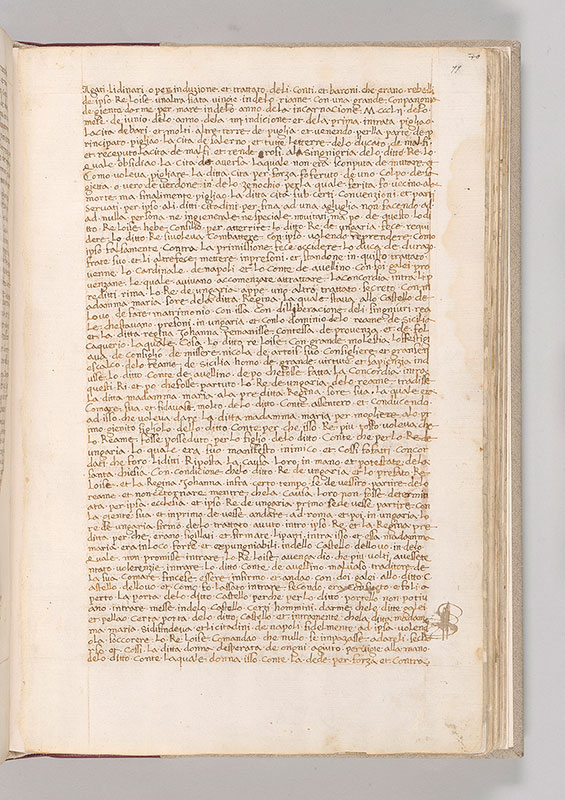 70
99
Agati. Lidinari. o per induzione. et trattato. deli. Conti. et baroni. che. erano. rebelli
de ipso. Re. Loise. unaltra. fiata. vinne. indelo. riame. con. una. grande. conpangnia
de giente. darme. per. mare. indelo. anno. dela. incarnacione. M. CCCL. delo
mese. de. iunio. delo. anno. dela. indicione. et. de la. prima. intrata. piglao.
La cita. de bari. et. molti. altre. terre. de. puglia. et. venendo. per la. parte. de. p
rincipato. piglao. la cita. de. salerno. et. tutte. le terre. delo. ducato. de. malfi.
et receputo. la cita. de. malfi. et. rende rosi. ala. singnioria. delo. ditto. Re. Lo
quale. obsidiao. la. Cita. de aversa. laquale. non. era. sconputa. de. mura. et
Como. voleva. pigliare. la ditta. cita. per. forza. fo feruto. de. uno. Colpo. de. sa
gietta. o vero. de verdone. in delo. zenochio. per la. quale. ferita. fo. vicino. alo
morte. ma. finalmente. piglao. la ditta. cita. sub. certi. convenzioni. et. parti
Servati. per. ipso. ali. ditti. citadini. per. fina. ad. una. agulgia. non. facendo. ad
ad. nulla. persona. ne. ingienerale. ne speciale. novitati. ma. po. de. questo. lo di
tto. Re. Loise. hebe. Consilio. per. atterrire. lo. ditto. Re. de. ungaria. fece. requi
dere. lo ditto. Re. si voleva. Combattere. con. ipso. volendo. reprendere. como
ipso. falsamente. Contra. la primissione. fece. occidere. lo. duca. de. duraz
frate. suo. et. li. altre fece. mettere. inpresoni. et. standone. in. quisto. trattato.
venne. lo. Cardinale. de napoli. et. lo. Conte. de avellino. con. sei. galei. pro
venzane. Le. quale. aviuano. accomenzare. attrattare. La concordia. intra. li. p
reditti. rima. Lo. Re. de. ungaria. appe. uno. altro. trattato. secreto. Con. m
adamma. maria. sore. dela. ditta. Regina. La quale. stava. allo. Castello. de
Lovo. de. fare. matrimonio. con. issa. Con. diliberacione. deli. singniuri. rea
Le. che stavano. presoni. in. ungaria. et. con lo. dominio. delo. reame. de. Sicilia
et. La. ditta. regina. Johanna. remanisse. Contessa. de. provenza. et. de. fol
caquerio. La quale. Cosa. lo. ditto. re. Loise. Con. grande. molestia. lo ffesrigi
ava. de. Consiglio. de. missere. nicola. de. arteis. suo. Consigliere. et gran seni
escalco. delo. reame. de. sicilia. homo. de. grande. virtute. et. sapienza. ma
isse. Lo. ditto. Conte. de. avellino. de po. che fosse. fatta. la Concordia. intra
questi. Ri. et. po. che fosse. partuto. Lo. Re. de. ungaria. delo. reame. tradisse
La ditta. madamma. maria. ala. pre ditta. Regina. sore. sua. La quale. era
Comare. sua. et. fidavase. molto. delo. ditto. Conte. assentero. et. Conducendo.
ad. isso. che voleva. dare. la ditta. madamma. maria. per. mogliere. alo. pr
imo. gienito. figliolo. delo. ditto. Conte. per. che. isso. Re. piu. tosto. voleva. che
Lo. Reame. fosse. posseduto. per lo. figlio. delo. ditto. Conte. che. per lo. Re. de
ungaria. Lo. quale. era. suo. manifesto. inimico. et. Cossi. fobati. concor
dati. che. foro. lidini. Riposta. la. Causa. Loro. in. mano. et. potestate. dela.
santa. chiesa. Con. condicione. che lo ditto. Re. de. ungaria. et. lo. prefato. Re.
Loise. et. la. Regina. Johanna. infra. certo. tempo. se. devessiro. partire. delo.
reame. et. non. ce tornare. mentre. che la. Causa. Loro. non. fosse. determin
ata. per. ipsa. ecclesia. et. ipso. Re. de. ungaria. primo. se devesse. partire. con
La. giente. sua. et. inprimo. de. vesse. andare. ad. roma. et. poi. in. ungaria. lo
re. de. ungaria. firmo. delo. trattato. avuto. intro. ipso. Re. et. La. Regina. pre
ditta. per. che. erano. sigillati. et. firmate. lipatti. intra. isso. et. essa. madamma.
maria. era. in loco. forte. et. expungniabili. indello. Castello. dellovo. indelo.
quale. non. promisse. intrare. Lo. Re. Loise. avenga. dio. che. piu. volti. avesse te
ntato. volerence. intrare. Lo. ditto. Conte. de. avellino. malvaso. traditore. de
La. sua. Comare. fince se. essere. infirmo. et. andao. con. doi. galei. allo. ditto. C
astello. dellovo. et. Como. fo. lassato. intrare. secondo. era. Consueto. e foli. a
perto. La porta. delo. ditto. Castello. perche. per lo. ditto. portello. non. potiv
ano. intrare. messe. indelo. Castello. certi. hommini. darme. che le. ditte. galei
et. pellao. certa. porta. delo. ditto. Castello. et. incitamente. che la. ditta. madam
ma. maria. si diffindeva. et li citadini. de. napoli. fidelmente. ad. ipsa. volend
ola. soccorrere. Lo. Re. Loise. Comandao. che. nullo. se. inpazasse. ad arpli. sec
rso. et. Cossi. La ditta. donna. desperata. de. ongni. agiuto. pervinne. alla. mano.
delo. ditto. Conte. La quale. donna. isso. Conte. La. dede. per. forza. et. Contra.